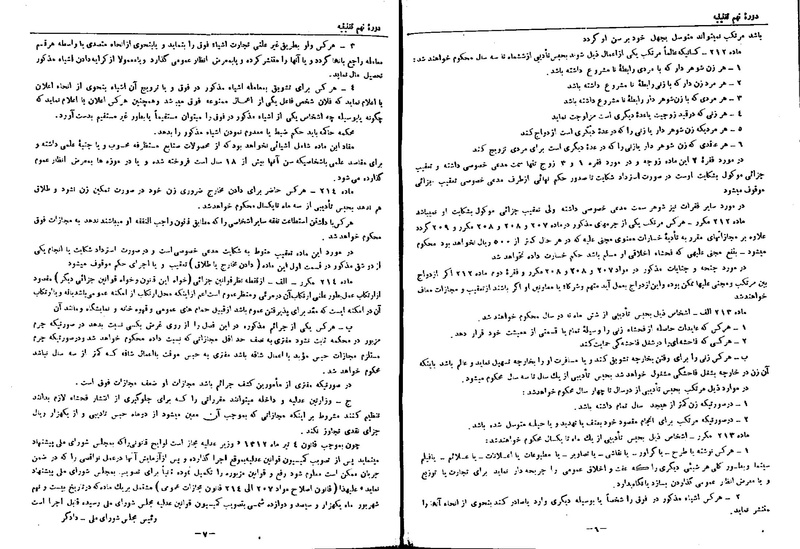 دورهٔ نهم تقنینیه
باشد مرتکب نمیتواند متوسل بجهل خود بر سن او گردد
ماده ۲۱۲ – کسانیکه عالماً مرتکب یکی از اعمال ذیل شوند بحبس تأدیبی از ششماه تا سه سال محکوم خواهند شد:
۱ – هر زن شوهر دار که با مردی رابطهٔ نا مشروع داشته باشد
۲ – هر مرد زن دار که با زنی رابطهٔ نا مشروع داشته باشد
۳ – هر مردی که با زن شوهر دار رابطهٔ نا مشروع داشته باشد
۴ – هر زنی که در قید زوجیت یا عدهٔ دیگری است مزاوجت نماید
۵ – هر مردیکه زن شوهر دار یا زنی را که در عدهٔ دیگری است ازدواج کند
۶ – هر عاقدی که زن شوهر دار یا زنی را که در عدهٔ دیگری است برای مردی تزویج کند
در مورد فقرهٔ ۲ این ماده زوجه و در مورد فقره ۱ و ۳ زوج تنها سمت مدعی خصوصی داشته و تعقیب
جزائی موکول بشکایت اوست در صورت استرداد شکایت تا صدور حکم نهائی از طرف مدعی خصوصی تعقیب جزائی
موقوف میشود
در مورد سایر فقرات نیز شوهر سمت مدعی خصوصی داشته ولی تعقیب جزائی موکول بشکایت او نمیباشد
ماده ۲۱۲ مکرر – هر کس مرتکب یکی از جرمهای مذکور در ماده ۲۰۷ و ۲۰۸ و ۲۰۸ مکرر و ۲۰۹ گردد
علاوه بر مجازاتهای مقرر به تأدیهٔ خسارات معنوی مجنی علیه که در هر حال کمتر از ۵۰۰ ریال نخواهد بود محکوم
میشود – بنفع مجنی علیهی که فحشاء اخلاقی او مسلم باشد حکم خسارت داده نخواهد شد
در مورد جنحه و جنایات مذکور در مواد ۲۰۷ و ۲۰۸ و ۲۰۸ مکرر و فقرهٔ دوم ماده ۲۱۲ اگر ازدواج
بین مرتکب و مجنی علیها ممکن بوده و این ازدواج بعمل آید متهم و شرکاء یا معاونین او اگر باشند از تعقیب و مجازات معاف
خواهند شد
ماده ۲۱۳ الف – اشخاص ذیل بحبس تأدیبی از شش ماه تا دو سال محکوم خواهند شد.
۱ – هر کس که عایدات حاصله از فحشاء زنی را وسیلهٔ تمام یا قسمتی از معیشت خود قرار دهد.
۲ – هر کس که فاحشه‌ای را در شغل فاحشگی حمایت کند
ب – هر کس زنی را برای رفتن بخارجه تشویق کند و یا مسافرت او را بخارجه تسهیل نماید و عالم باشد باینکه
آن زن در خارجه بشغل فاحشگی مشغول خواهد شد بحبس تأدیبی از یک سال تا سه سال محکوم میشود.
در موارد ذیل مرتکب بحبس تأدیبی از دو سال تا چهار سال محکوم خواهد شد:
۱ – در صورتیکه زن کمتر از هیجده سال تمام داشته باشد.
۲ – در صورتیکه مرتکب برای انجام مقصود خود بعنف یا تهدید و یا حیله متوسل شده باشد.
ماده ۲۱۳ مکرر – اشخاص ذیل بحبس تأدیبی از یک ماه تا یکسال محکوم خواهند شد:
۱ – هر کس نوشته یا طرح – یا گراور – یا نقاشی – یا تصاویر – یا مطبوعات یا اعلانات – یا علائم – یا فیلم
سینما و بطور کلی هر شیئی دیگری را که عفت و اخلاق عمومی را جریحه دار نماید برای تجارت یا توزیع
و یا بمعرض انظار عمومی گذاردن بسازد یا نگاه بدارد.
۲ – هر کس اشیاء مذکور در فوق را شخصاً یا بوسیله دیگری وارد یا صادر کند بنحوی از انحاء آنها را
منتشر نماید.
– ۶ –
دورهٔ نهم تقنینیه
۳ – هر کس ولو بطریق غیر علنی تجارت اشیاء فوق را بنماید و یا بنحوی از انحاء متصدی یا واسطه هر قسم
معامله راجع بآنها گردد و یا آنها را منتشر کرده و یا بمعرض انظار عمومی گذارد و یا معمولا از کرایه دادن اشیاء مذکور
تحصیل مال نماید.
۴ – هر کس برای تشویق بمعامله اشیاء مذکور در فوق و یا ترویج آن اشیاء بنحوی از انحاء اعلان
یا اعلام نماید که فلان شخص فاعل یکی از اعمال ممنوعه فوق میباشد و همچنین هر کس اعلان یا اعلام نماید که
چگونه یا بوسیله چه اشخاص یکی از اشیاء مذکور در فوق را میتوان مستقیماً یا بطور غیر مستقیم بدست آورد.
محکمه حاکم باید حکم ضبط یا معدوم نمودن اشیاء مذکور را بدهد.
مفاد این ماده شامل اشیائی نخواهد بود که از محصولات صنایع مستظرفه محسوب و یا جنبهٔ علمی داشته و
برای مقاصد علمی باشخاصیکه سن آنها بیش از ۱۸ سال است فروخته شده و یا در موزه ها بمعرض انظار عموم
گذارده میشود.
ماده ۲۱۴ – هر کس حاضر برای دادن مخارج ضروری زن خود در صورت تمکین زن نشود و طلاق
هم ندهد بحبس تأدیبی از سه ماه تا یکسال محکوم خواهد شد.
هر کس با داشتن استطاعت نفقه سایر اشخاصی را که مطابق قانون واجب النفقه او میباشند ندهد به مجازات فوق
محکوم خواهد شد.
در مورد این ماده تعقیب منوط به شکایت مدعی خصوصی است و در صورت استرداد شکایت یا انجام یکی
از دو شق مذکور در قسمت اول این ماده ( دادن مخارج یا طلاق ) تعقیب و یا اجرای حکم موقوف میشود
ماده ۲۱۴ مکرر – الف – از نقطه نظر قوانین جزائی (خواه این قانون و خواه قوانین جزائی دیگر ) مقصود
از ارتکاب عمل بطور علنی ارتکاب آن در مرئی و منظر عموم است اعم از اینکه محل ارتکاب از امکنه عمومی باشد یا نه و یا ارتکاب
آن در امکنه است که معد برای پذیرفتن عموم باشد از قبیل حمام های عمومی و قهوه خانه و نمایشگاه و مانند آن
ب – هر کس یکی از جرائم مذکوره در این فصل را از روی غرض بکسی نسبت بدهد در صورتیکه جرم
مزبور در محکمه ثبت نشود مفتری به نصف حد اقل مجازاتی که نسبت داده محکوم خواهد شد و در صورتیکه جرم
مستلزم مجازات حبس مؤبد با اعمال شاقه باشد مفتری به حبس موقت با اعمال شاقه که کمتر از سه سال نباشد
محکوم خواهد شد.
در صورتیکه مفتری از مأمورین کشف جرائم باشد مجازات او ضعف مجازات فوق است.
ج – وزارتین عدلیه و داخله میتوانند مقرراتی را که برای جلوگیری از انتشار فحشاء لازم بدانند
تنظیم کنند مشروط بر اینکه مجازاتی که بموجب آن معین میشود از دو ماه حبس تأدیبی و از یکهزار ریال
جزای نقدی تجاوز نکند.
چون بموجب قانون ۴ تیر ماه ۱۳۱۲ « وزیر عدلیه مجاز است لوایح قانونی را که بمجلس شورای ملی پیشنهاد
مینماید پس از تصویب کمیسیون قوانین عدلیه بموقع اجرا گذارده و پس از آزمایش آنها در عمل نواقصی را که در ضمن
جریان ممکن است معلوم شود رفع و قوانین مزبوره را تکمیل نموده ثانیاً برای تصویب بمجلس شورای ملی پیشنهاد
نماید» علیهذا (قانون اصلاح مواد ۲۰۷ الی ۲۱۴ قانون مجازات عمومی ) مشتمل بر یک ماده که در تاریخ بیست و نهم
شهریور ماه یکهزار و سیصد و دوازده شمسی بتصویب کمیسیون قوانین عدلیه مجلس شورای ملی رسیده قابل اجرا است
رئیس مجلس شورای ملی – دادگر
– ۷ –